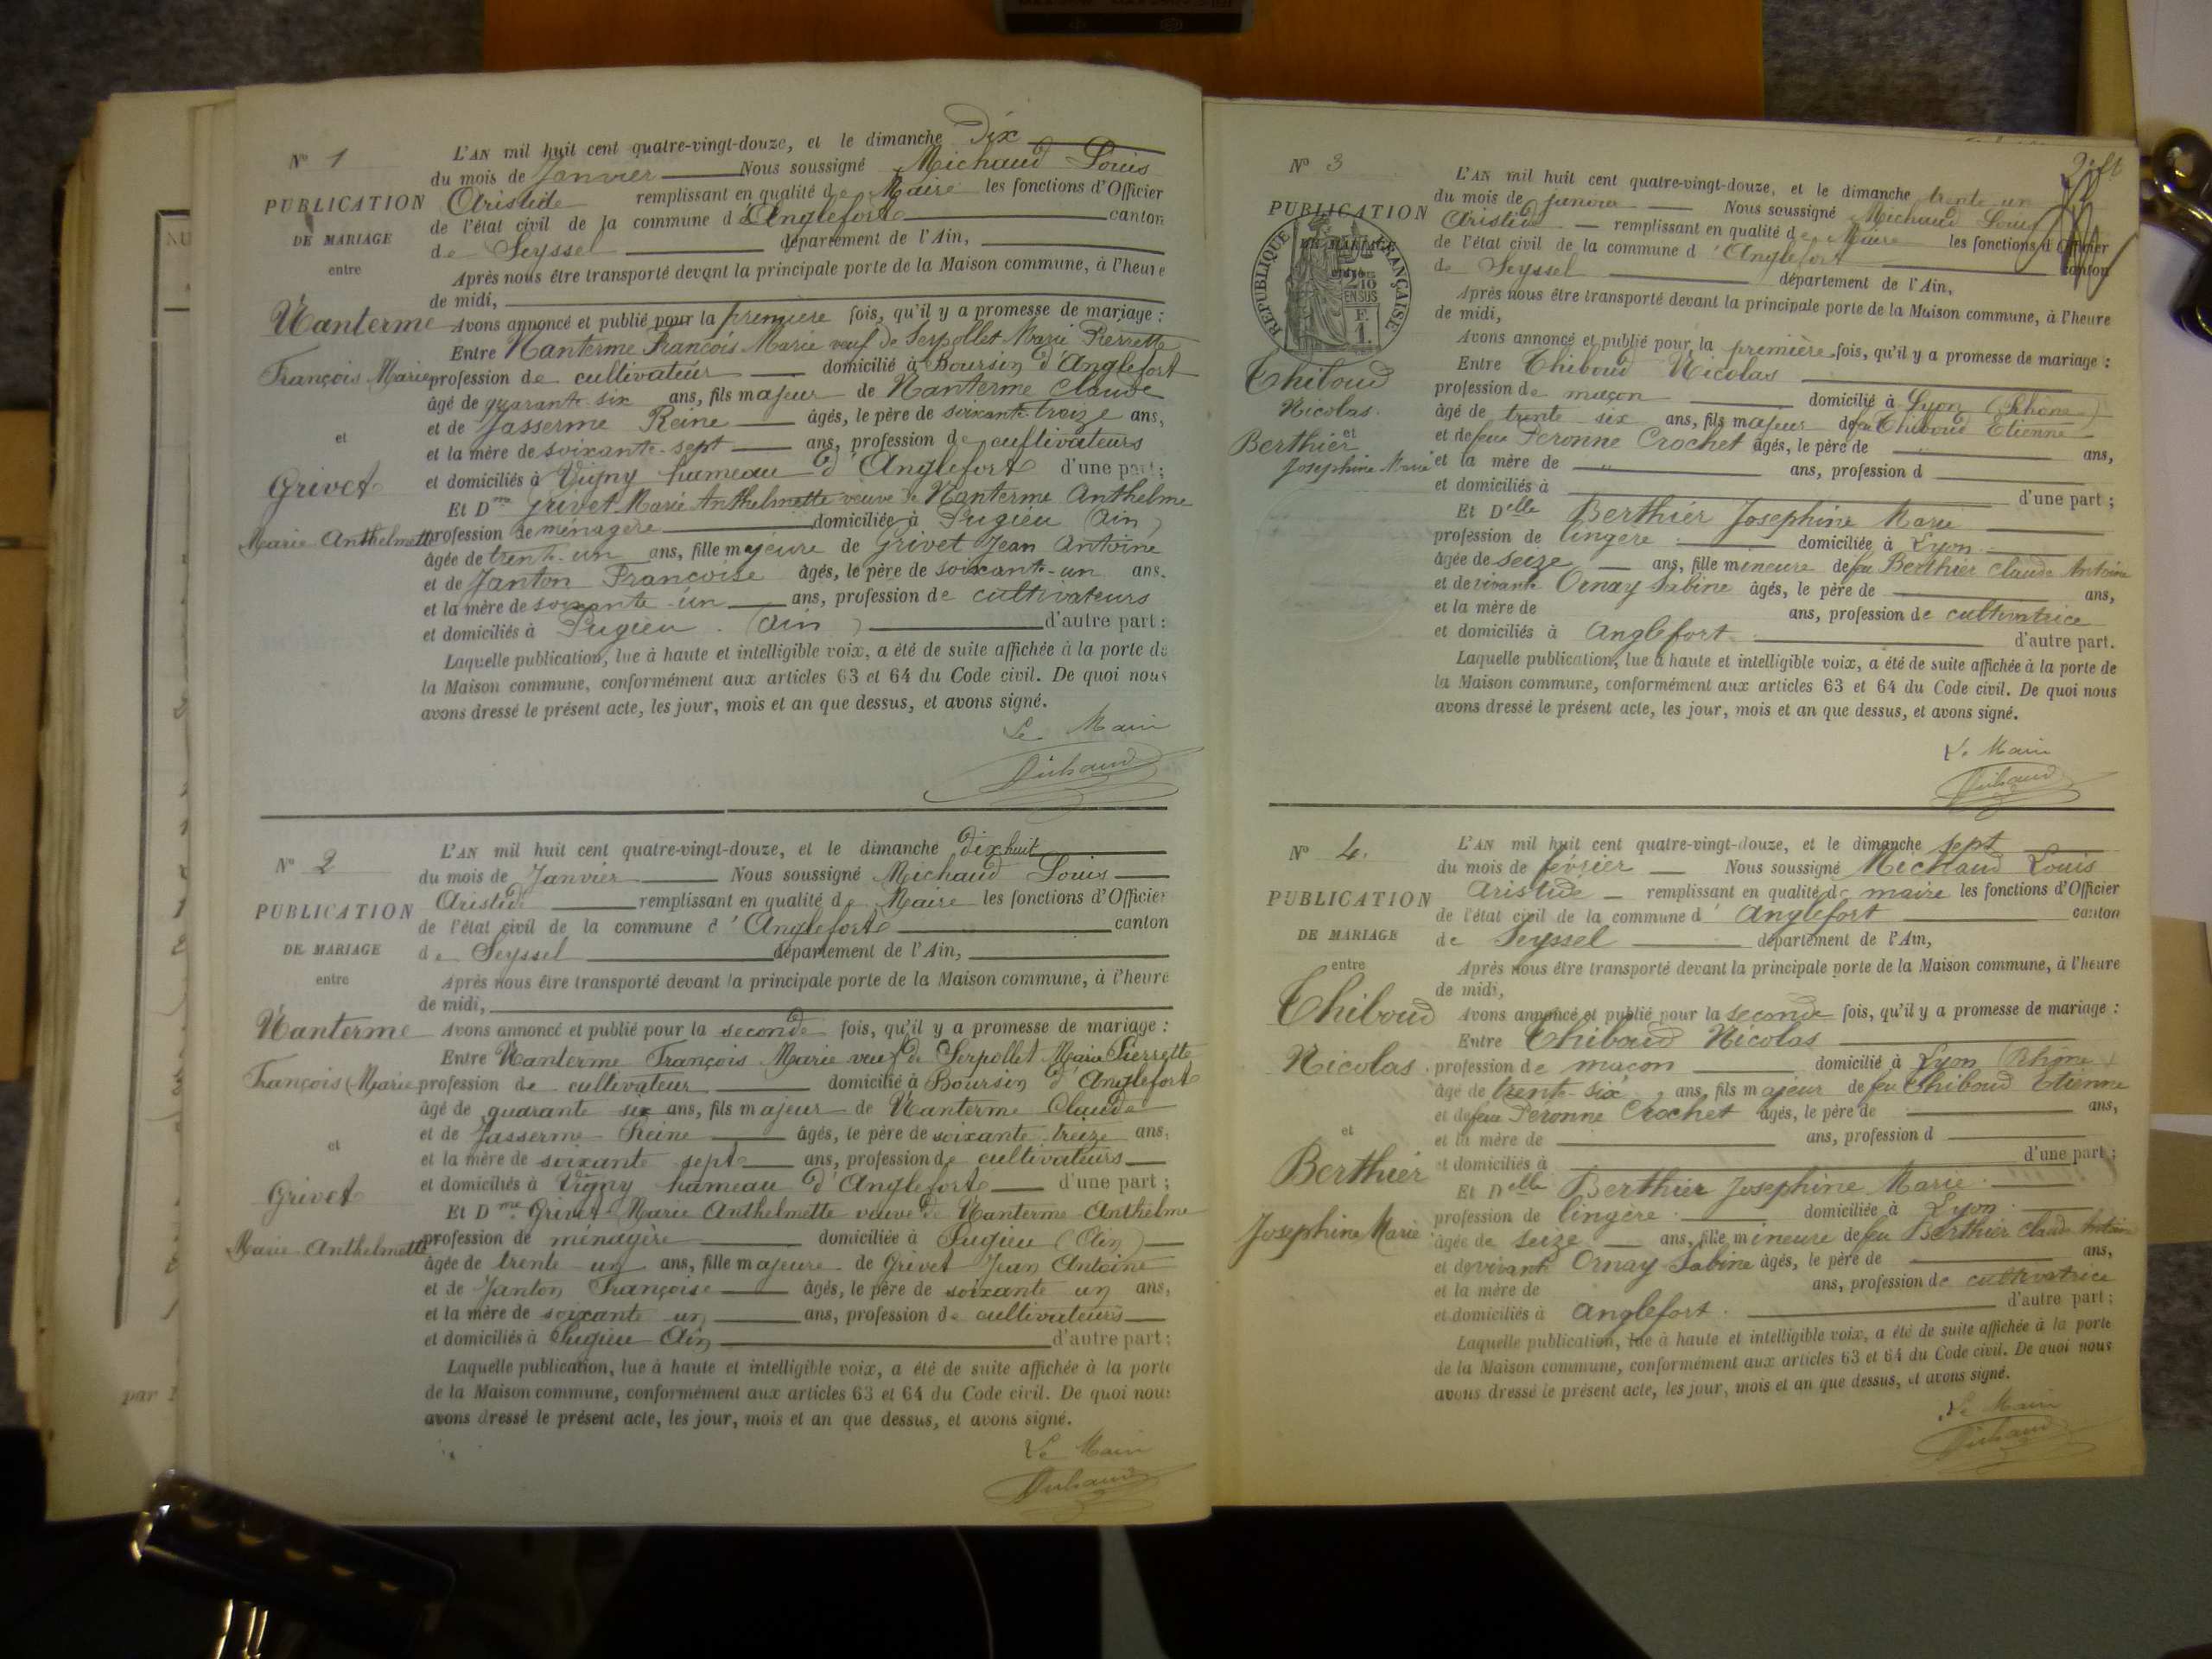 N° 1
PUBLICATION
DE MARIAGE
entre
Nanterme
François Marie
et
Grivet
Marie Anthelmette
L'AN mil huit cent quatre-vingt-douze, et le dimanche Dix
du mois de Janvier Nous soussigné Michaud Louis
Aristide remplissant en qualité de Maire les fonctions d'Officier
de l'état civil de la commune d'Anglefort canton
de Seyssel département de l'Ain,
Après nous être transporté devant la principale porte de la Maison commune, à l'heure
de midi,
Avons annoncé et publié pour la première fois, qu'il y a promesse de mariage :
Entre Nanterme François Marie veuf de Serpollet Marie Pierrette
profession de cultivateur domicilié à Boursin d'Anglefort
âgé de quarante six ans, fils majeur de Nanterme Claude
et de Jasserme Reine âgés, le père de soixante treize ans,
et la mère de soixante-sept ans, profession de cultivateurs
et domiciliés à Vigny hameau d'Anglefort d'une part ;
Et Dme Grivet Marie Anthelmette veuve de Nanterme Anthelme
profession de ménagère domiciliée à Pugieu (Ain)
âgée de trente-un ans, fille majeure de Grivet Jean Antoine
et de Janton Françoise âgés, le père de soixante-un ans,
et la mère de soixante-un ans, profession de cultivateurs
et domiciliés à Pugieu (Ain) d'autre part :
Laquelle publication, lue à haute et intelligible voix, a été de suite affichée à la porte de
la Maison commune, conformément aux articles 63 et 64 du Code civil. De quoi nous
avons dressé le présent acte, les jour, mois et an que dessus, et avons signé.
Le Maire
Michaud
N° 2
PUBLICATION
DE MARIAGE
entre
Nanterme
François Marie
et
Grivet
Marie Anthelmette
L'AN mil huit cent quatre-vingt-douze, et le dimanche dix huit
du mois de Janvier Nous soussigné Michaud Louis
Aristide remplissant en qualité de Maire les fonctions d'Officier
de l'état civil de la commune d'Anglefort canton
de Seyssel département de l'Ain,
Après nous être transporté devant la principale porte de la Maison commune, à l'heure
de midi,
Avons annoncé et publié pour la seconde fois, qu'il y a promesse de mariage :
Entre Nanterme François Marie veuf de Serpollet Marie Pierrette
profession de cultivateur domicilié à Boursin d'Anglefort
âgé de quarante six ans, fils majeur de Nanterme Claude
et de Jasserme Reine âgés, le père de soixante treize ans,
et la mère de soixante sept ans, profession de cultivateurs
et domiciliés à Vigny hameau d'Anglefort d'une part ;
Et Dme Grivet Marie Anthelmette veuve de Nanterme Anthelme
profession de ménagère domiciliée à Pugieu (Ain)
âgée de trente un ans, fille majeure de Grivet Jean Antoine
et de Janton Françoise âgés, le père de soixante un ans,
et la mère de soixante un ans, profession de cultivateurs
et domiciliés à Pugieu Ain d'autre part :
Laquelle publication, lue à haute et intelligible voix, a été de suite affichée à la porte
de la Maison commune, conformément aux articles 63 et 64 du Code civil. De quoi nous
avons dressé le présent acte, les jour, mois et an que dessus, et avons signé.
Le Maire
Michaud
N° 3
PUBLICATION
DE MARIAGE
RÉPUBLIQUE FRANÇAISE
2/10
EN SUS
Thiboud
Nicolas
et
Berthier
Josephine Marie
L'AN mil huit cent quatre-vingt-douze, et le dimanche trente un
du mois de janvier Nous soussigné Michaud Louis
Aristide remplissant en qualité de Maire les fonctions d'Officier
de l'état civil de la commune d'Anglefort canton
de Seyssel département de l'Ain,
Après nous être transporté devant la principale porte de la Maison commune, à l'heure
de midi,
Avons annoncé et publié pour la première fois, qu'il y a promesse de mariage :
Entre Thiboud Nicolas
profession de maçon domicilié à Lyon (Rhône)
âgé de trente six ans, fils majeur de feu Thiboud Etienne
et de feue Peronne Crochet âgés, le père de ans,
et la mère de " ans, profession d
et domiciliés à d'une part ;
Et Delle Berthier Josephine Marie
profession de lingère domiciliée à Lyon
âgée de seize ans, fille mineure de feu Berthier Claude Antoine
et de vivante Ornay Sabine âgés, le père de ans,
et la mère de ans, profession de cultivatrice
et domiciliés à Anglefort d'autre part.
Laquelle publication, lue à haute et intelligible voix, a été de suite affichée à la porte de
la Maison commune, conformément aux articles 63 et 64 du Code civil. De quoi nous
avons dressé le présent acte, les jour, mois et an que dessus, et avons signé.
Le Maire
Michaud
N° 4.
PUBLICATION
DE MARIAGE
entre
Thiboud
Nicolas
et
Berthier
Josephine Marie
L'AN mil huit cent quatre-vingt-douze, et le dimanche sept
du mois de février Nous soussigné Michaud Louis
Aristide remplissant en qualité de maire les fonctions d'Officier
de l'état civil de la commune d'Anglefort canton
de Seyssel département de l'Ain,
Après nous être transporté devant la principale porte de la Maison commune, à l'heure
de midi,
Avons annoncé et publié pour la seconde fois, qu'il y a promesse de mariage :
Entre Thiboud Nicolas
profession de maçon domicilié à Lyon (Rhône)
âgé de trente-six ans, fils majeur de feu Thiboud Etienne
et de feue Peronne Crochet âgés, le père de ans,
et la mère de ans, profession d
et domiciliés à d'une part ;
Et Delle Berthier Josephine Marie
profession de lingère domiciliée à Lyon
âgée de seize ans, fille mineure de feu Berthier Claude Antoine
et de vivante Ornay Sabine âgés, le père de ans,
et la mère de ans, profession de cultivatrice
et domiciliés à Anglefort d'autre part ;
Laquelle publication, lue à haute et intelligible voix, a été de suite affichée à la porte
de la Maison commune, conformément aux articles 63 et 64 du Code civil. De quoi nous
avons dressé le présent acte, les jour, mois et an que dessus, et avons signé.
Le Maire
Michaud
par